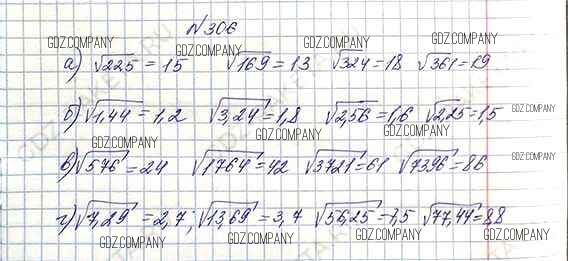 №306
GDZ.COMPANY GDZ.COMPANY GDZ.COMPANY GDZ.COMPANY
а) √225 = 15 √169 = 13 √324 = 18 √361 = 19
GDZ.COMPANY
б) √1,44 = 1,2 √3,24 = 1,8 √2,56 = 1,6 √2,25 = 1,5
GDZ.COMPANY GDZ.COMPANY GDZ.COMPANY GDZ.COMPANY
в) √576 = 24 √1764 = 42 √3721 = 61 √7396 = 86
GDZ.COMPANY
г) √7,29 = 2,7; √13,69 = 3,7 √56,25 = 7,5 √77,44 = 8,8
GDZ.COMPANY GDZ.COMPANY GDZ.COMPANY GDZ.COMPANY